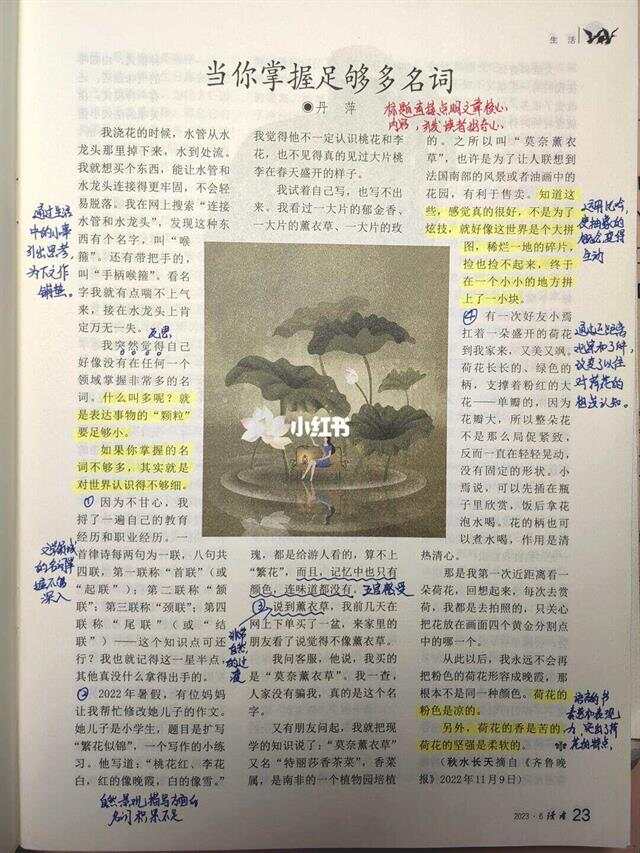 生活
当你掌握足够多名词
●丹 萍
标题直接点明文章核心
内容，引发读者好奇心
我浇花的时候，水管从水
龙头那里掉下来，水到处流。
我就想买个东西，能让水管和
水龙头连接得更牢固，不会轻
易脱落。我在网上搜索“连接
水管和水龙头”，发现这种东
西有个名字，叫“喉
箍”。还有带把手的，
叫“手柄喉箍”。看名
字我就有点喘不上气
来，接在水龙头上肯
定万无一失。
通过生活
中的小事
引出思考
为下文作
铺垫。
反思
我突然觉得自己
好像没有在任何一个
领域掌握非常多的名
词。什么叫多呢？就
是表达事物的“颗粒”
要足够小。
如果你掌握的名
词不够多，其实就是
对世界认识得不够细。
①因为不甘心，我
捋了一遍自己的教育
经历和职业经历。一
首律诗每两句为一联，八句共
四联，第一联称“首联”（或
“起联”）；第二联称“颔
联”；第三联称“颈联”；第四
联称“尾联”（或“结
联”）——这个知识点可还
行？我也就记得这一星半点，
其他真没什么拿得出手的。
文学领域
的名词掌
握不够
深入
②2022年暑假，有位妈妈
让我帮忙修改她儿子的作文。
她儿子是小学生，题目是扩写
“繁花似锦”，一个写作的小练
习。他写道：“桃花红、李花
白，红的像晚霞，白的像雪。”
自然景观描写方面
名词积累不足
我觉得他不一定认识桃花和李
花，也不见得真的见过大片桃
李在春天盛开的样子。
我试着自己写，也写不出
来。我看过一大片的郁金香、
一大片的薰衣草、一大片的玫
小红书
瑰，都是给游人看的，算不上
“繁花”，而且，记忆中也只有
颜色，连味道都没有。五官感受
③说到薰衣草，我前几天在
网上下单买了一盆，来家里的
朋友看了说觉得不像薰衣草。
非常
自然
的过
渡
我问客服，他说，我买的
是“莫奈薰衣草”。我一查，
人家没有骗我，真的是这个名
字。
又有朋友问起，我就把现
学的知识说了：“莫奈薰衣草
又名“特丽莎香茶菜”，香茶菜
属，是南非的一个植物园培植
的。之所以叫“莫奈薰衣
草”，也许是为了让人联想到
法国南部的风景或者油画中的
花园，有利于售卖。知道这
些，感觉真的很好，不是为了
炫技，就好像这世界是个大拼
图，稀烂一地的碎片，
捡也捡不起来，终于
在一个小小的地方拼
上了一小块。
运用比喻
使抽象的
概念变得
生动
④有一次好友小焉
扛着一朵盛开的荷花
到我家来，又美又飒。
荷花长长的、绿色的
柄，支撑着粉红的大
花——单瓣的，因为
花瓣大，所以整朵花
不是那么局促紧致，
反而一直在轻轻晃动，
没有固定的形状。小
焉说，可以先插在瓶
子里欣赏，饭后拿花
泡水喝。花的柄也可
以煮水喝，作用是清
热清心。
通过近距离
观察和了解，
改变了以往
对荷花的
粗浅认知。
那是我第一次近距离看一
朵荷花，回想起来，每次去赏
荷，我都是去拍照的，只关心
把花放在画面四个黄金分割点
中的哪一个。
从此以后，我永远不会再
把粉色的荷花形容成晚霞，那
根本不是同一种颜色。荷花的
粉色是凉的。
另外，荷花的香是苦的，
荷花的坚强是柔软的。
（秋水长天摘自《齐鲁晚
报》2022年11月9日）
2023·6 读者 23